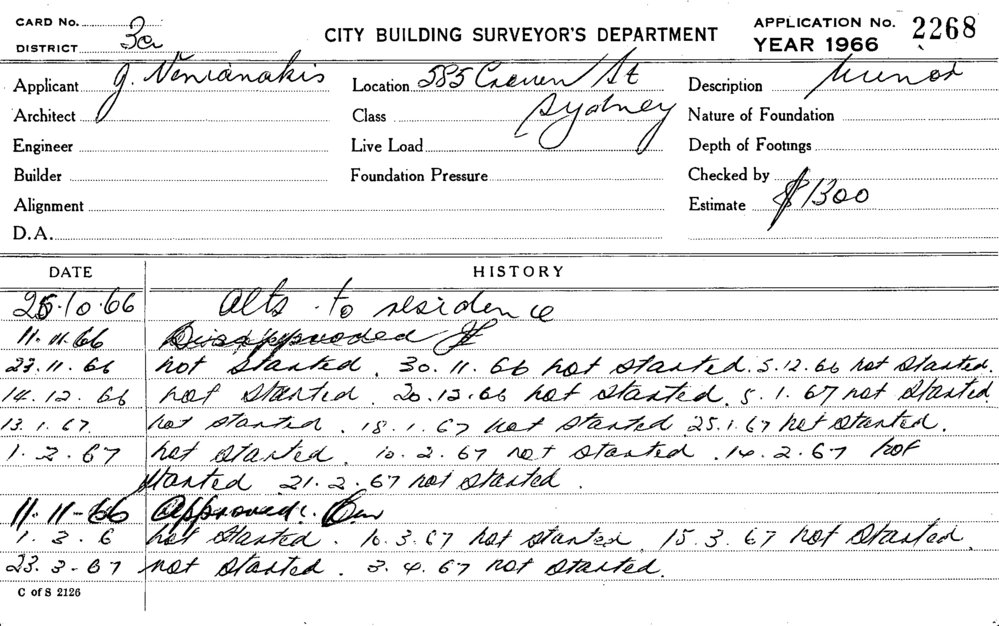 CARD No.
DISTRICT 3a
CITY BUILDING SURVEYOR'S DEPARTMENT
APPLICATION No. 2268
YEAR 1966
Applicant J. Venianakis
Location 585 Crown St
Description Minor
Architect
Class Sydney
Nature of Foundation
Engineer
Live Load
Depth of Footings
Builder
Foundation Pressure
Checked by
Alignment
Estimate $1300
D.A.
DATE HISTORY
25.10.66 Alts to residence
11.11.66 Disapproved
23.11.66 not started. 30.11.66 not started. 5.12.66 not started.
14.12.66 not started 20.12.66 not started. 5.1.67 not started
13.1.67. not started. 18.1.67 not started 25.1.67 not started.
1.2.67 not started. 10.2.67 not started. 14.2.67 not
started 21.2.67 not started.
11.11-66 Approved.
1.3.6 not started. 10.3.67 not started. 15.3.67 not started.
23.3.67 not started. 3.4.67 not started.
C of S 2126